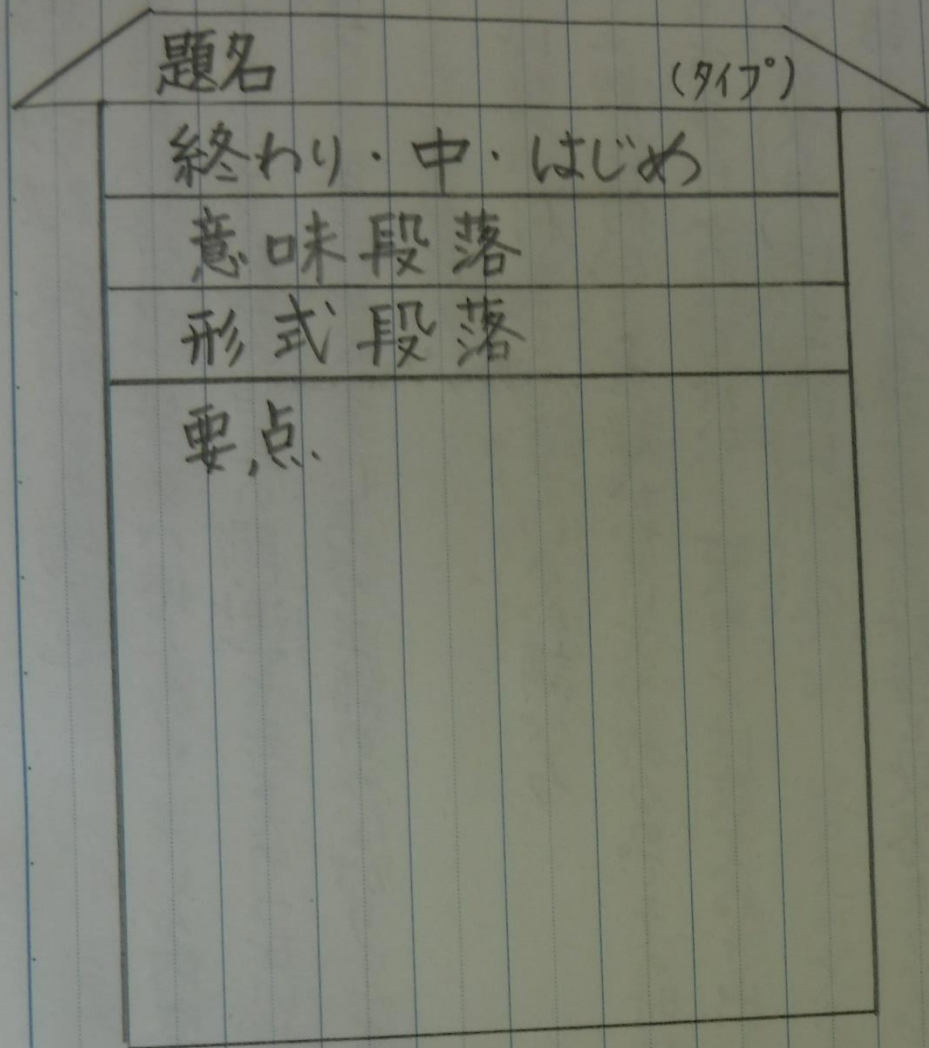 題名 (タイプ)
終わり・中・はじめ
意味段落
形式段落
要点